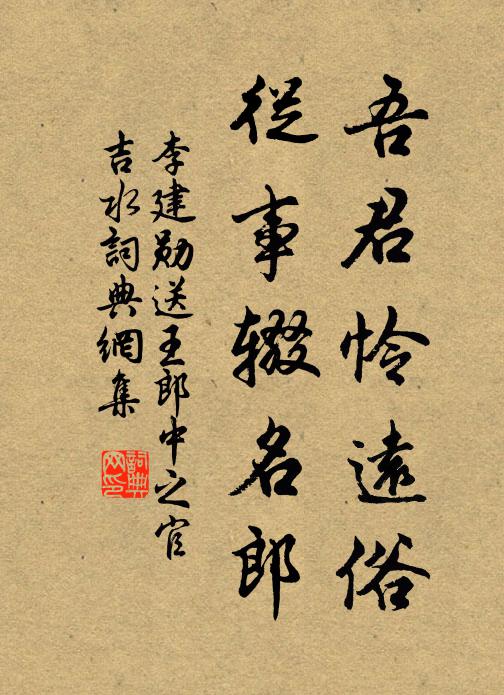 吾君怜遠俗
從事辍名郎
李建勋送王郎中之官
吉水詞典網集
詞典
网印